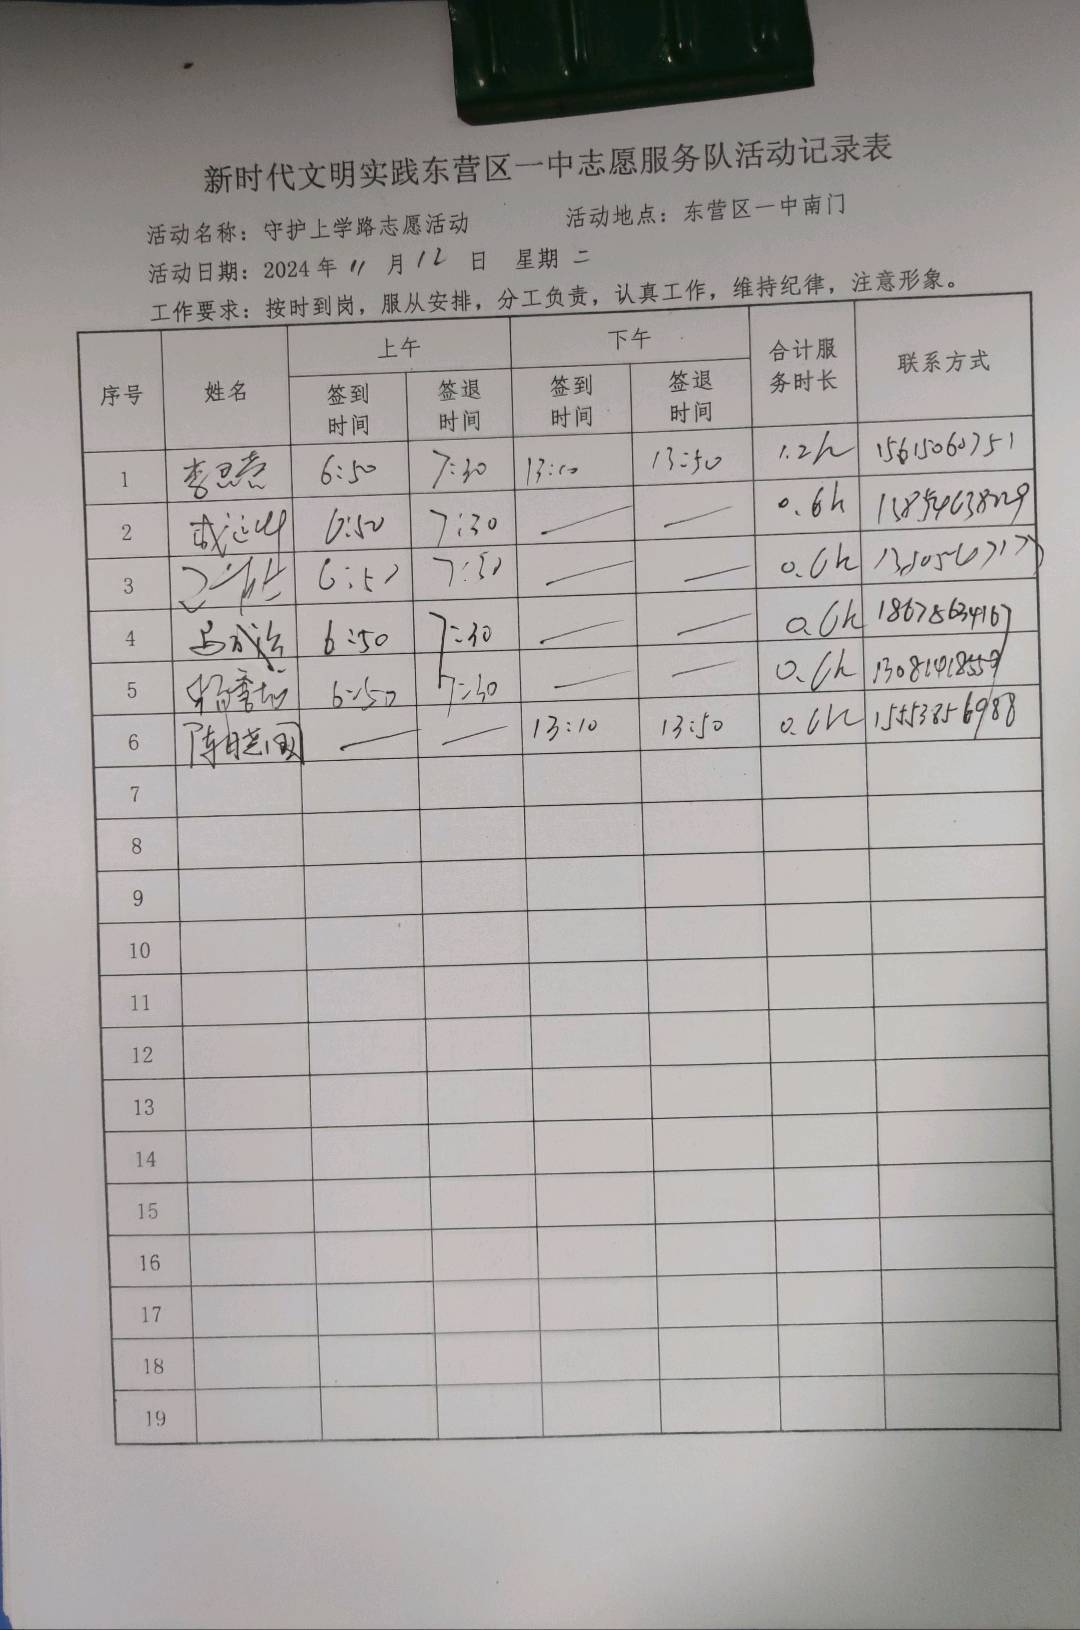 新时代文明实践东营区一中志愿服务队活动记录表
活动名称：守护上学路志愿活动 活动地点：东营区一中南门
活动日期：2024年 11 月 12 日 星期 二
工作要求：按时到岗，服从安排，分工负责，认真工作，维持纪律，注意形象。
序号 姓名 上午 下午 合计服务时长 联系方式
签到时间 签退时间 签到时间 签退时间
1 6:50 7:30 13:10 13:50 1.2h 15615060751
2 6:50 7:30 — — 0.6h
3 6:50 7:30 — — 0.6h
4 6:50 7:30 — — 0.6h 18678634167
5 6:50 7:30 — — 0.6h 13081418559
6 — — 13:10 13:50 0.6h 15553856988
7
8
9
10
11
12
13
14
15
16
17
18
19